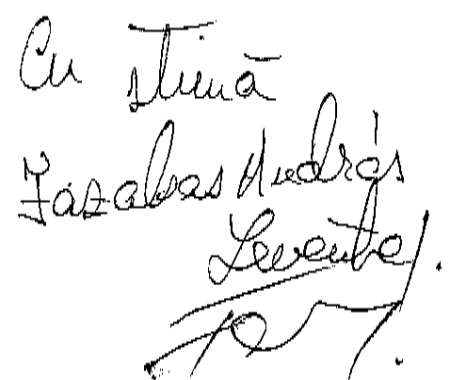 Cu stimă
Fazakas András
Levente.